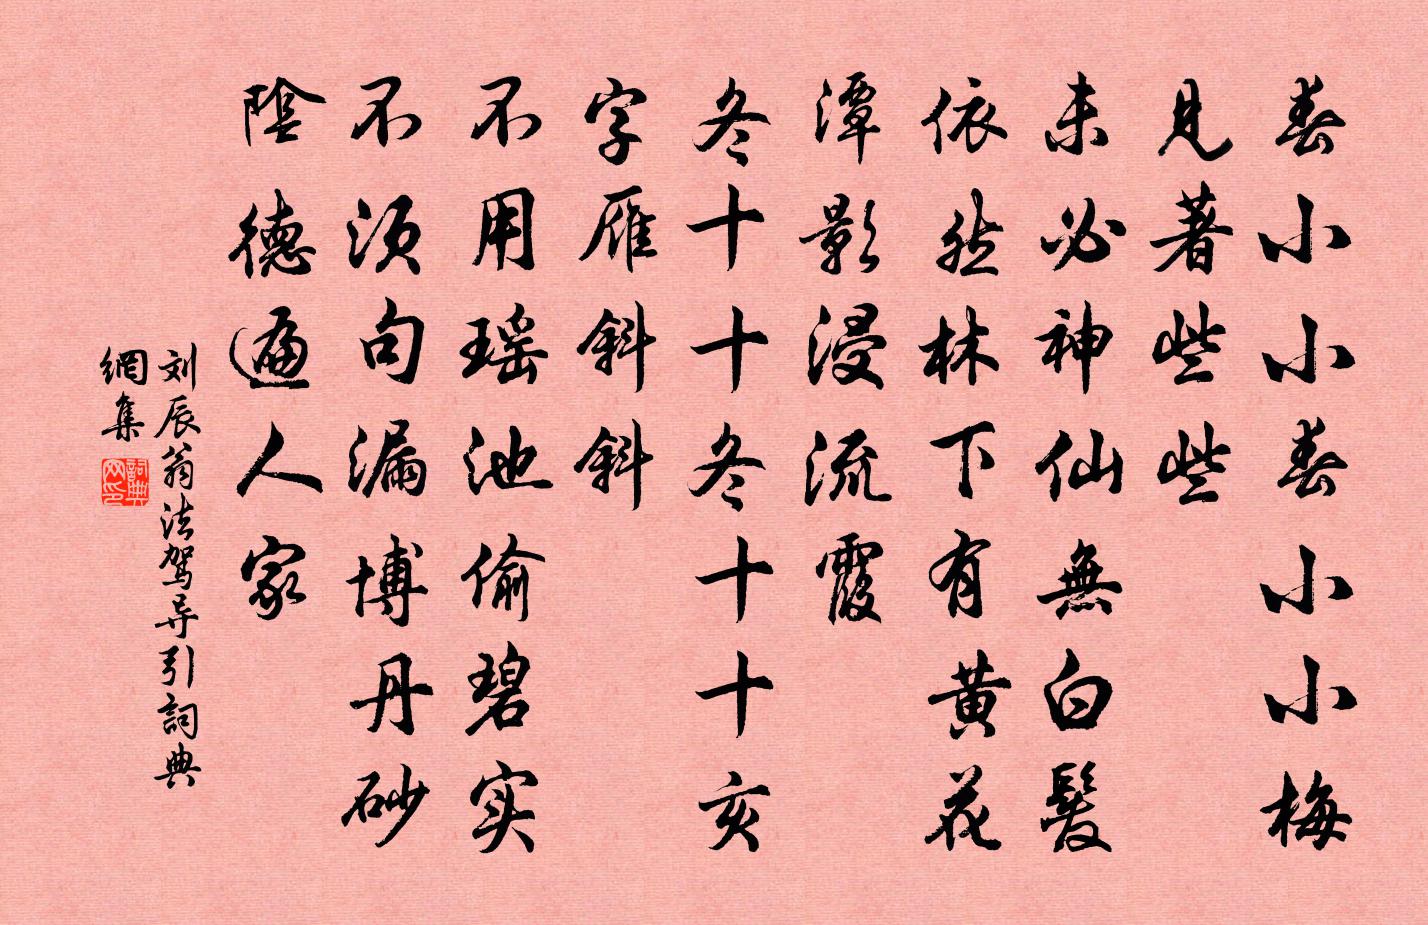 春小小春小小梅
見著些些
未必神仙無白髮
依然林下有黄花
潭影浸流霞
冬十十冬十十亥
字雁斜斜
不用瑶池偷碧实
不须句漏博丹砂
陰德遍人家
刘辰翁法驾导引詞典
網集
詞典
网印